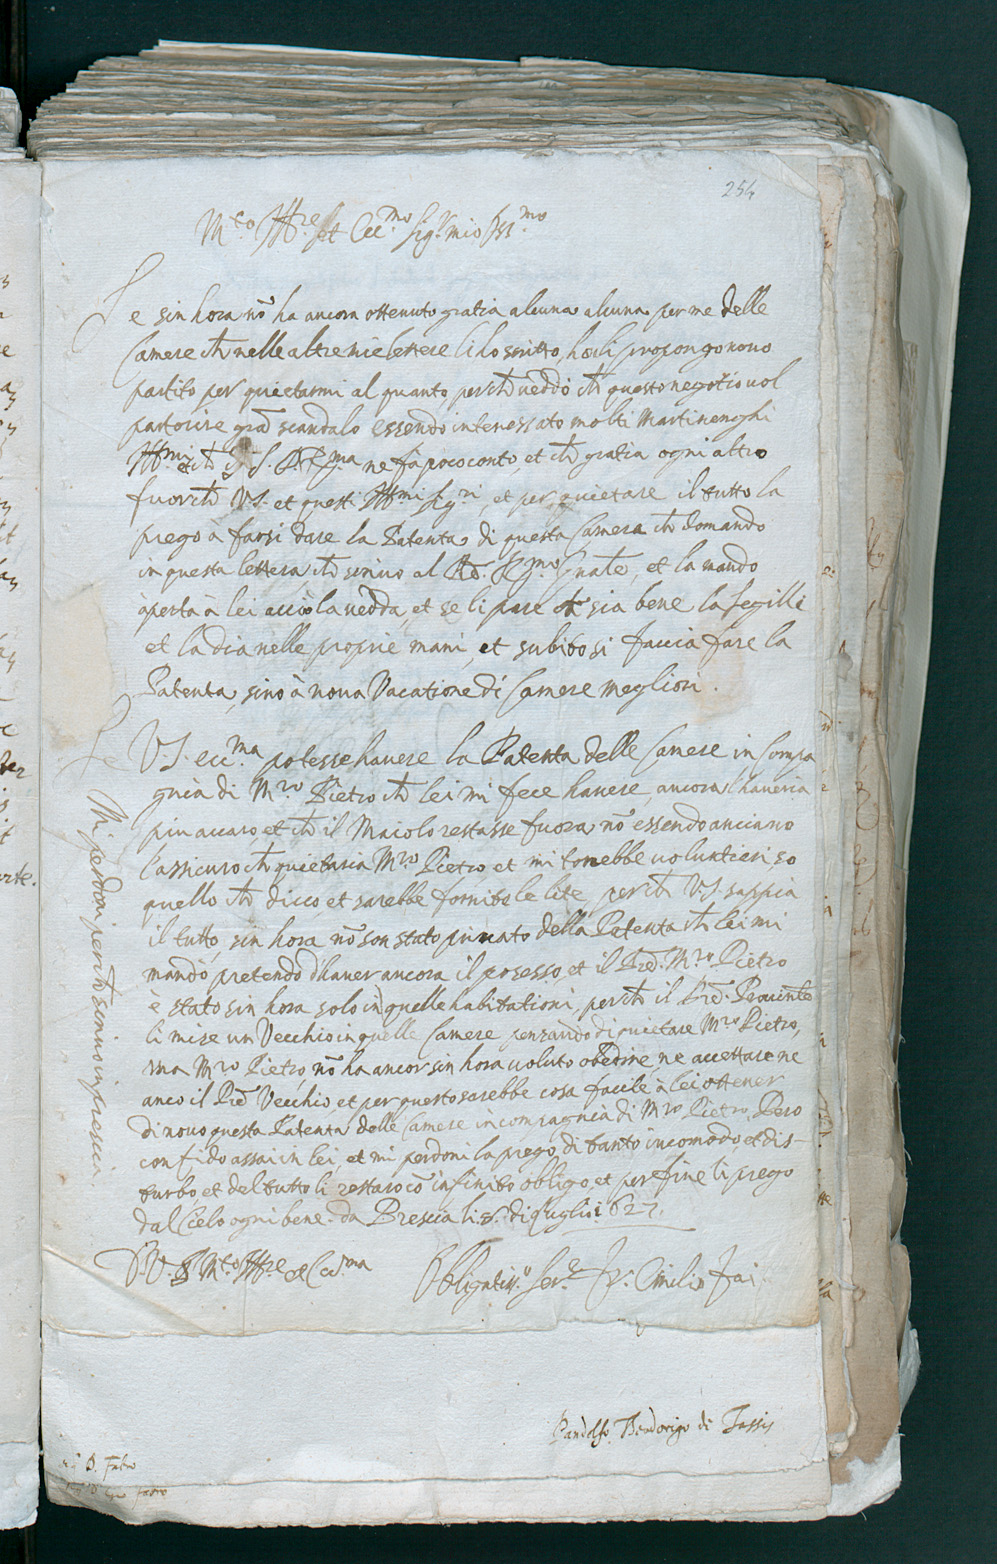 254
M.to Ill.re et Ecc.mo Sig.r mio oss.mo
Se sin hora nõ ha ancora ottenuto gratia alcuna alcuna per me delle
Camere ch̃ nelle altre mie lettere li ho scritto, hor li propongo novo
partito per quietarmi al quanto, perch̃ veddo ch̃ questo negotio vol
partorire grã scandalo essendo interessato molti Martinenghi
Ill.mi et ch̃ S. R.ma ne fa poco conto, et ch̃ gratia ogni altro
fuorch̃ V.S. et questi Ill.mi Sig.ri, et per quietare il tutto la
prego à farsi dare la Patenta di questa Camera ch̃ domando
in questa lettera ch̃ scrivo al R.mo et la mando
àperta à lei acciò la vedda, et se li pare ch̃ sia bene la segilli
et la dia nelle proprie mani, et subito si faccia fare la
Patenta, sino à nova Vacatione di Camere megliori.
Se V.S. ecc.ma potesse havere la Patenta delle Camere in Compa
gnia di M.ro Pietro ch̃ lei mi fece havere, ancora l'haveria
piu accaro et ch̃ il Maiolo restasse fuora nõ essendo anciano
l'assicuro ch̃ quietaria M.ro Pietro et mi torrebbe voluntieri, so
quello ch̃ dicco, et sarebbe fornito le lite, perch̃ V.S. sappia
il tutto, sin hora nõ son stato privato della Patenta ch̃ lei mi
mandò, pretendo d'haver ancora il posesso, et il Pred. M.ro Pietro
è stato sin hora solo in quelle habitationi, perch̃ il Pred. Provinc.le
li mise un Vecchio in quelle Camere penzando di quietare M.ro Pietro,
ma M.ro Pietro nõ ha ancor sin hora voluto obedire, ne accettare ne
anco il Pred Vecchio, et per questo sarebbe cosa facile à lei ottener
di novo questa Patenta delle Camere in compagnia di M.ro Pietro, Pero
confido assai in lei, et mi perdoni la prego di tanto incomodo, et dis-
turbo, et del tutto li restarò cõ infinito obligo, et per fine li prego
dal Cielo ogni bene. da Brescia li 8. di Luglio 1627.
Mi perdoni perch̃ scrivo in prescia.
D. V. S. M.to Ill.re et Ecc.ma
Obligatiss.o Ser.re Fr. Emilio Fai
Pandolfo Bendorigo di Tassis